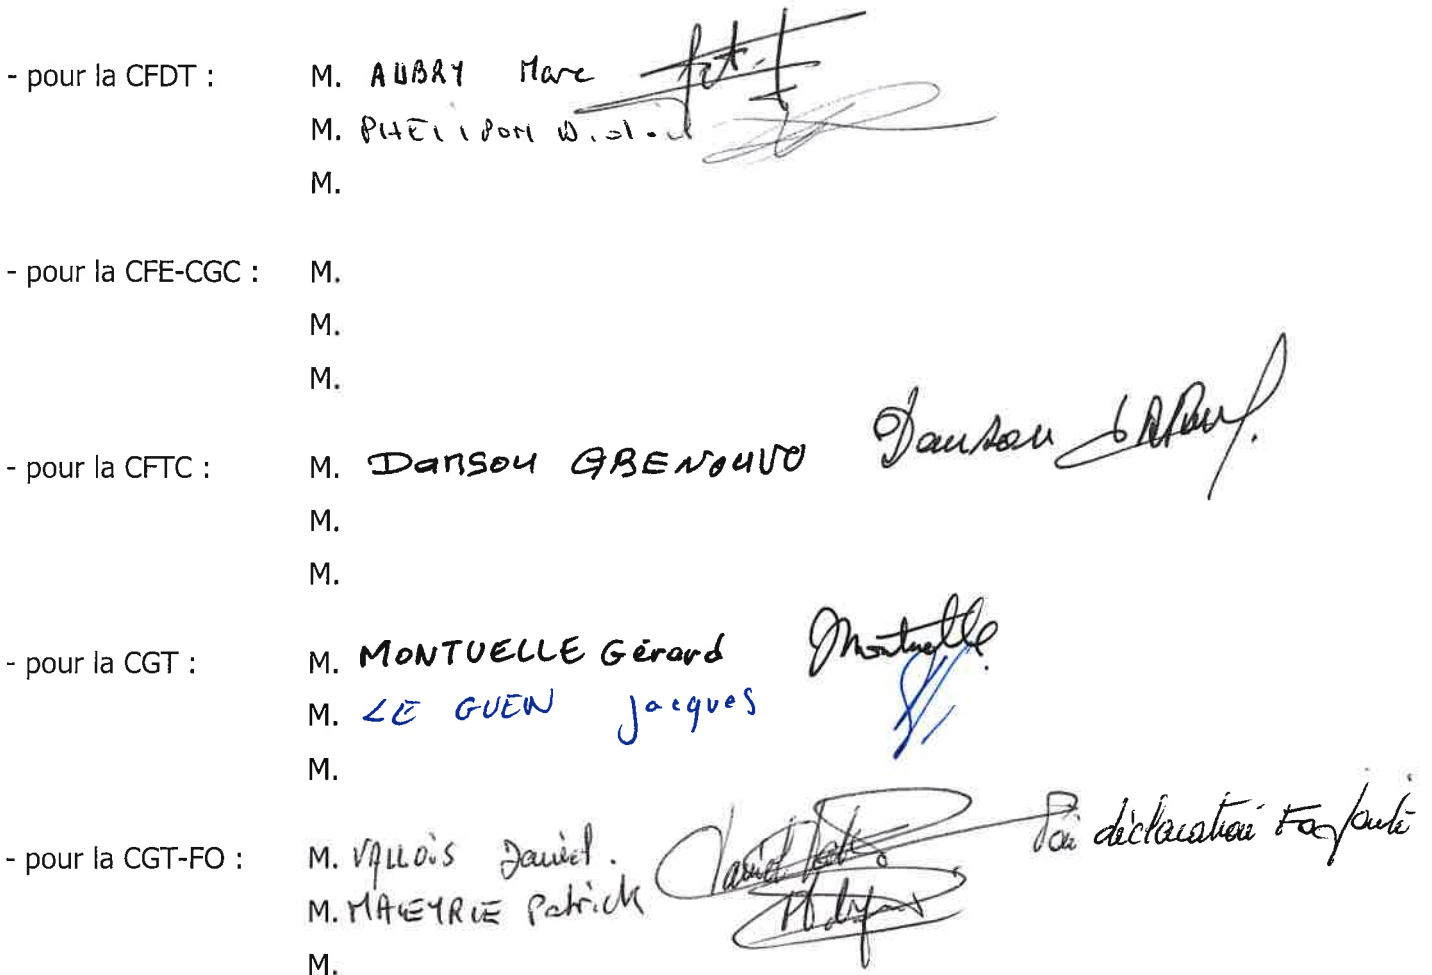 - pour la CFDT : M. AUBRY Marc
M. PHELIPON
M.
- pour la CFE-CGC : M.
M.
M.
- pour la CFTC : M. Dansou GBENOUVO Dansou
M.
M.
- pour la CGT : M. MONTUELLE Gérard Montuelle
M. LE GUEN Jacques
M.
déclaration FO jointe
- pour la CGT-FO : M. VALLOIS Daniel.
M. MALEYRIE Patrick
M.